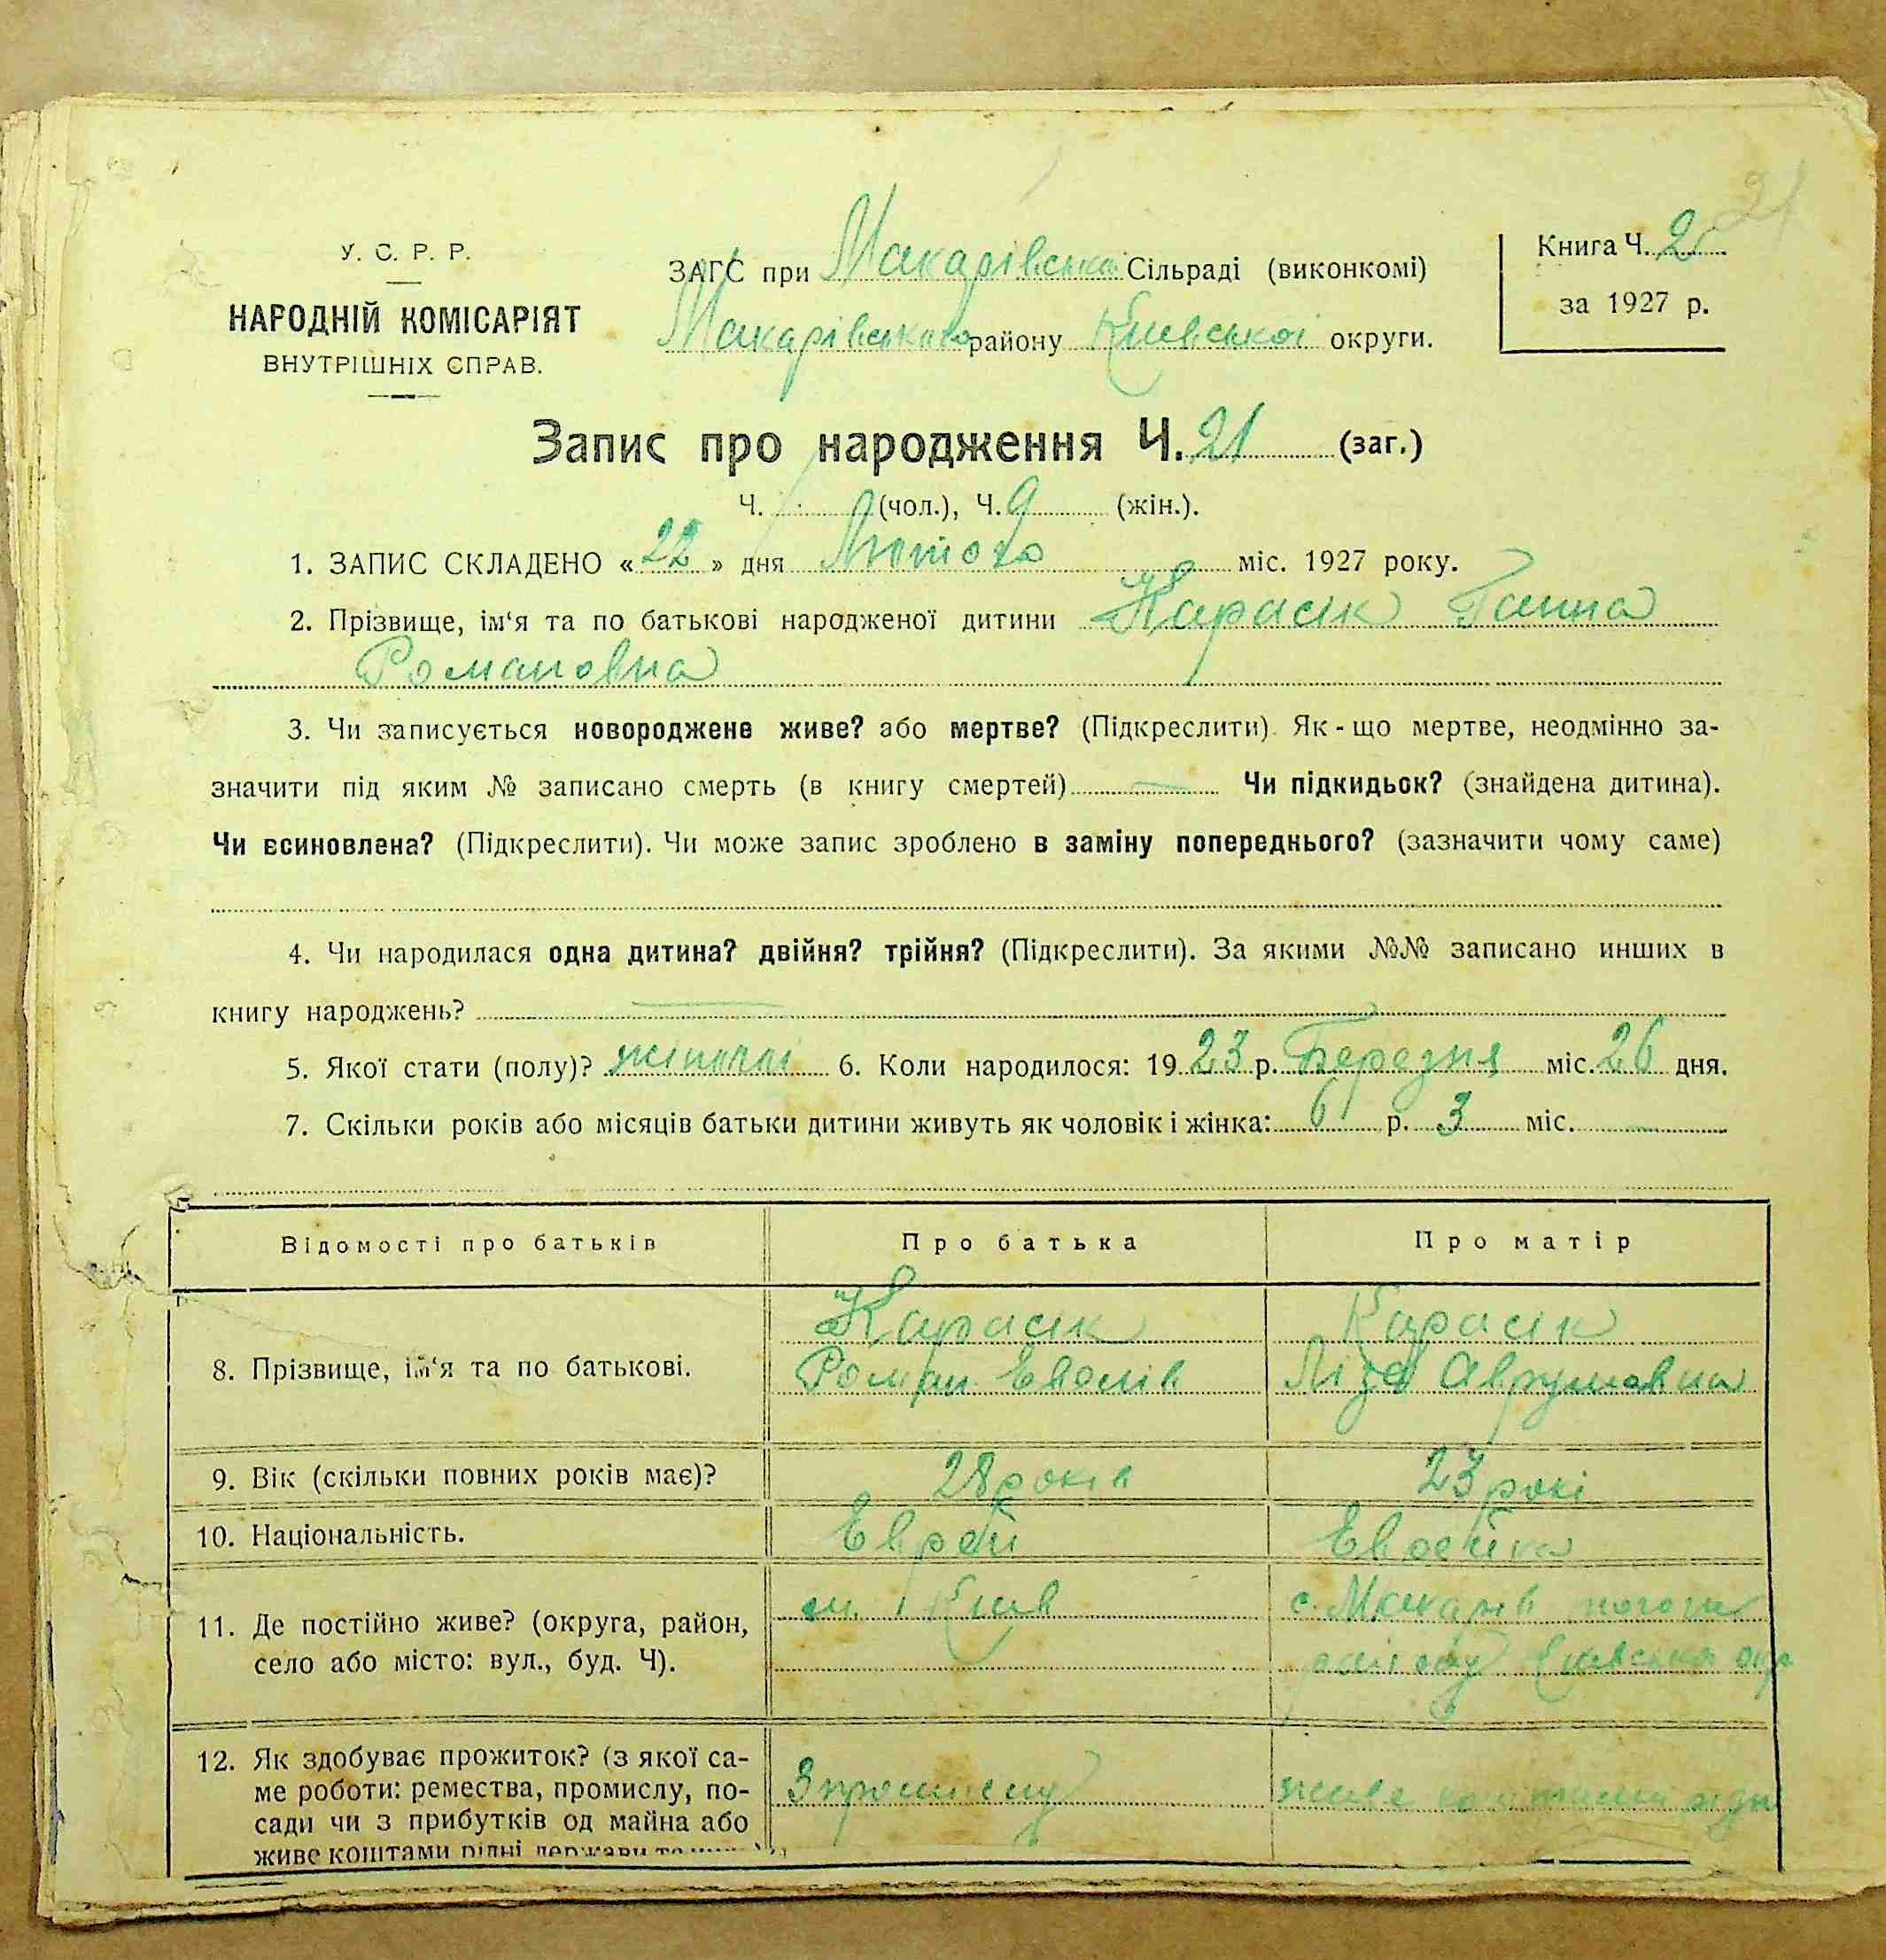 21
У. С. Р. Р.
НАРОДНІЙ КОМІСАРІЯТ
ВНУТРІШНІХ СПРАВ.
ЗАГС при Макарівській Сільраді (виконкомі)
Макарівського району Київської округи.
Книга Ч. 2
за 1927 р.
Запис про народження Ч. 21 (заг.)
Ч. (чол.), Ч. 9 (жін.).
1. ЗАПИС СКЛАДЕНО « 22 » дня Лютого міс. 1927 року.
2. Прізвище, ім'я та по батькові народженої дитини Карасік Ганна
Романовна
3. Чи записується новороджене живе? або мертве? (Підкреслити). Як-що мертве, неодмінно за-
значити під яким № записано смерть (в книгу смертей) — Чи підкидьок? (знайдена дитина).
Чи всиновлена? (Підкреслити). Чи може запис зроблено в заміну попереднього? (зазначити чому саме)
4. Чи народилася одна дитина? двійня? трійня? (Підкреслити). За якими №№ записано инших в
книгу народжень? —
5. Якої стати (полу)? жіночої 6. Коли народилося: 19 23 р. Березня міс. 26 дня.
7. Скільки років або місяців батьки дитини живуть як чоловік і жінка: 6 р. 3 міс. —
Відомості про батьків Про батька Про матір
8. Прізвище, ім'я та по батькові.
Карасік
Роман
Карасік
Ліза Аврумовна
9. Вік (скільки повних років має)? 28 років 23 рокі
10. Національність. Еврей Еврейка
11. Де постійно живе? (округа, район,
село або місто: вул., буд. Ч).
м. Київ
с. Макарів
району Київська окр
12. Як здобуває прожиток? (з якої са-
ме роботи: ремества, промислу, по-
сади чи з прибутків од майна або
живе коштами рідні держави
З промислу
живе коштами рідні